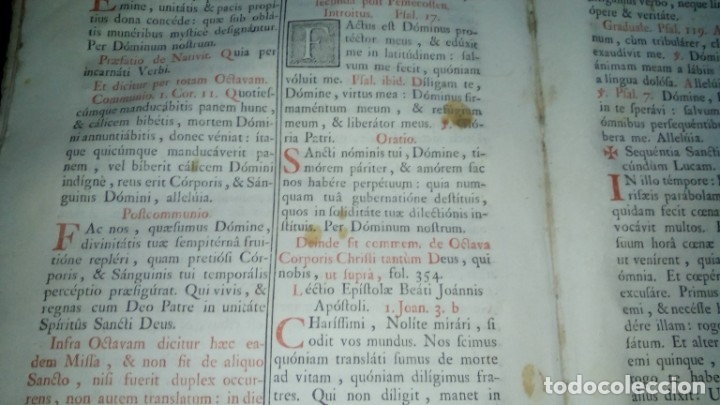 Emine, unitátis & pacis propi-
tius dona concéde: quæ sub oblá-
tis munéribus mystice designántur
Per Dóminum nostrum.
Præfatio de Nativit. Quia per
incarnáti Verbi.
Et dicitur per totam Octavam.
Communio. 1. Cor. 11. Quotieſ-
cúmque manducábitis panem hunc,
& cálicem bibétis, mortem Dómi-
ni annuntiábitis, donec véniat: íta-
que quicúmque manducáverit pa-
nem, vel bíberit cálicem Dómini
indignè, reus erit Córporis, & Sán-
guinis Dómini, allelúia.
Poſtcommunio.
FAc nos, quæſumus Dómine,
divinitátis tuæ ſempitérnâ frui-
tióne repléri, quam pretióſi Cór-
poris, & Sánguinis tui temporális
percéptio præfigúrat. Qui vivis, &
regnas cum Deo Patre in unitáte
Spíritûs Sancti Deus.
Infra Octavam dicitur hæc ea-
dem Miſſa, & non fit de aliquo
Sancto, niſi fuerit duplex occur-
rens, non autem tranſlatum: in die
ſecunda poſt Pentecoſten.
Introitus. Pſal. 17.
FActus eſt Dóminus pro-
téctor meus, & edúxit
me in latitúdinem: ſal-
vum me fecit, quóniam
vóluit me. Pſal. ibid. Díligam te,
Dómine, virtus mea: Dóminus fir-
maméntum meum, & refúgium
meum, & liberátor meus. ℣. Gló-
ria Patri.
Oratio.
SAncti nóminis tui, Dómine, ti-
mórem páriter, & amórem fac
nos habére perpétuum: quia num-
quam tuâ gubernatióne deſtítuis,
quos in ſoliditáte tuæ dilectiónis in-
ſtítuis. Per Dóminum noſtrum.
Deinde fit commem. de Octava
Corporis Chriſti tantùm Deus, qui
nobis, ut ſuprà, fol. 354.
Léctio Epíſtolæ Beáti Joánnis
Apóſtoli. 1. Joan. 3. b
CHaríſſimi, Nolíte mirári, ſi
odit vos mundus. Nos ſcimus
quóniam transláti ſumus de morte
ad vitam, quóniam diligimus fra-
tres. Qui non díligit, manet in
ópere & veritáte.
Graduale. Pſal. 119. A
num, cùm tribulárer, c
exaudívit me. ℣. Dó
ánimam meam a lábiis
a lingua dolóſa. Allelú
℣. Pſal. 7. Dómine
in te ſperávi: ſalvum
ómnibus perſequéntib
bera me. Allelúia.
✠ Sequéntia Sancti
cúndum Lucam.
IN illo témpore: D
riſæis parábolam
quidam fecit cœn
vocávit multos.
ſuum horâ cœnæ
ut venírent, quia
ómnia. Et cœpér
excuſáre. Primus
emi, & necéſſe h
dére illam: rogo
tum. Et alter
emi quinque,
illa: rogo te
todocoleccion
todocoleccion